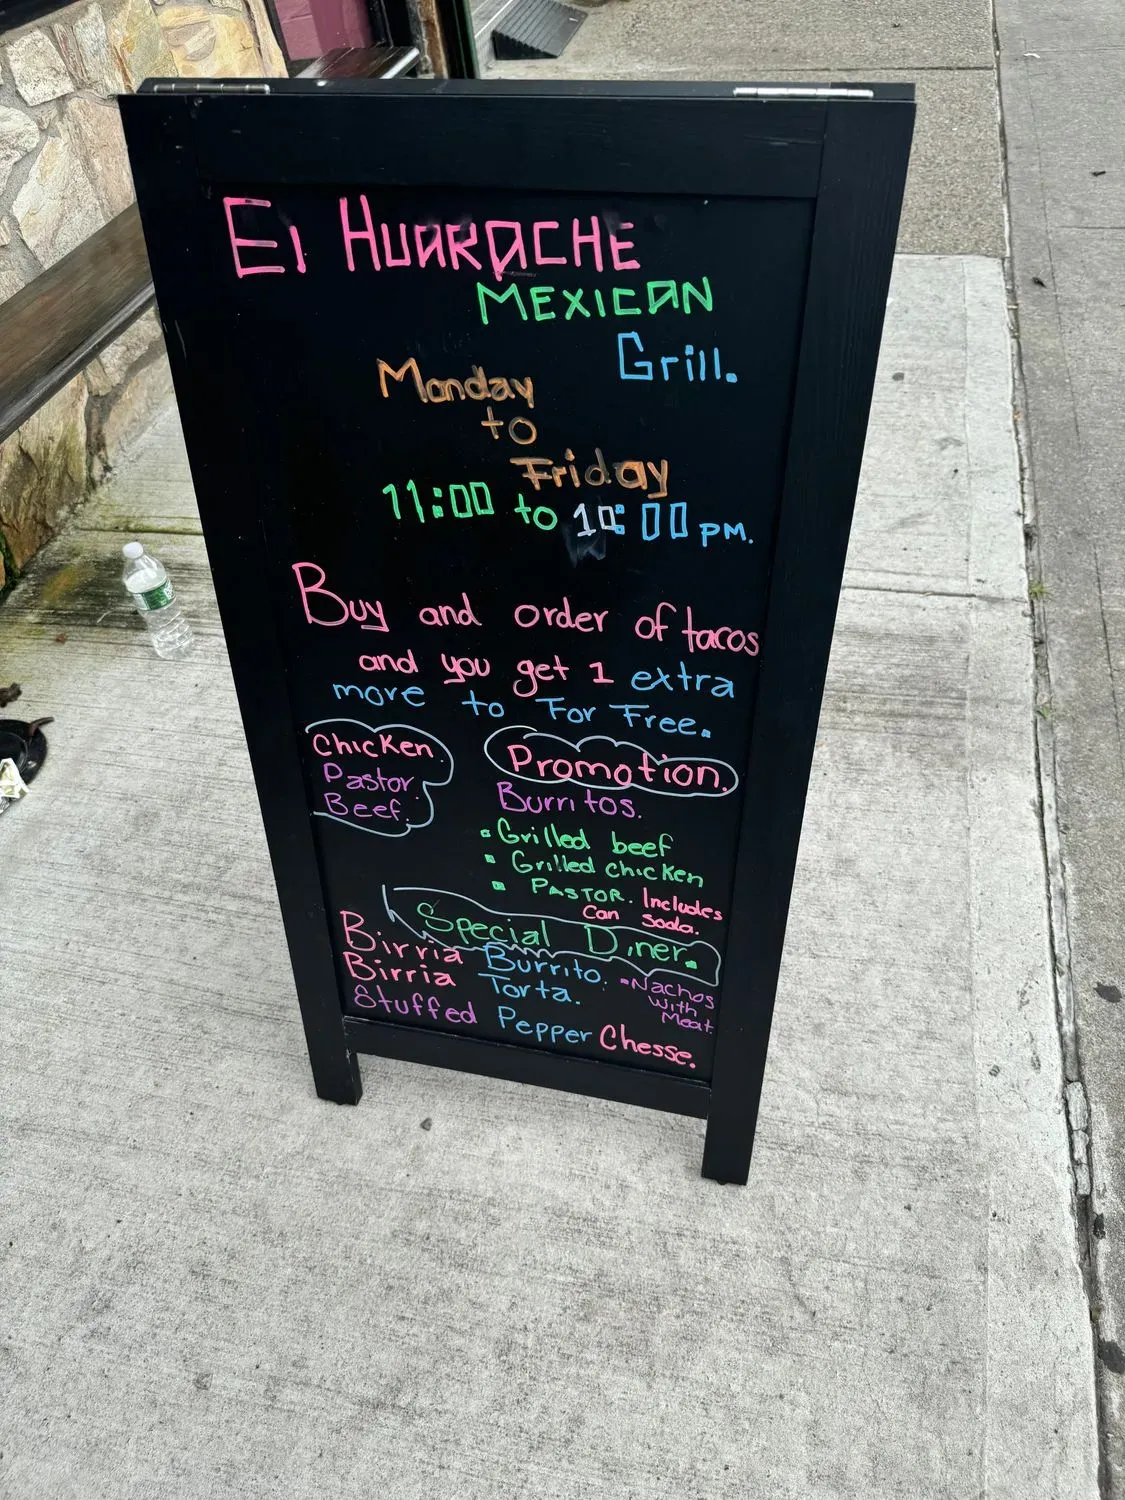 El HUARACHE
MEXICAN
Grill.
Monday
to
Friday
11:00 to 10:00 PM.
Buy and order of tacos
and you get 1 extra
more to For Free.
Chicken.
Pastor.
Beef.
Promotion.
Burritos.
▪ Grilled beef
▪ Grilled chicken
▪ PASTOR. Includes
Can Soda.
Special Diner.
Birria Burrito.
Birria Torta.
▪ Nachos
with
Meat.
Stuffed Pepper Chesse.